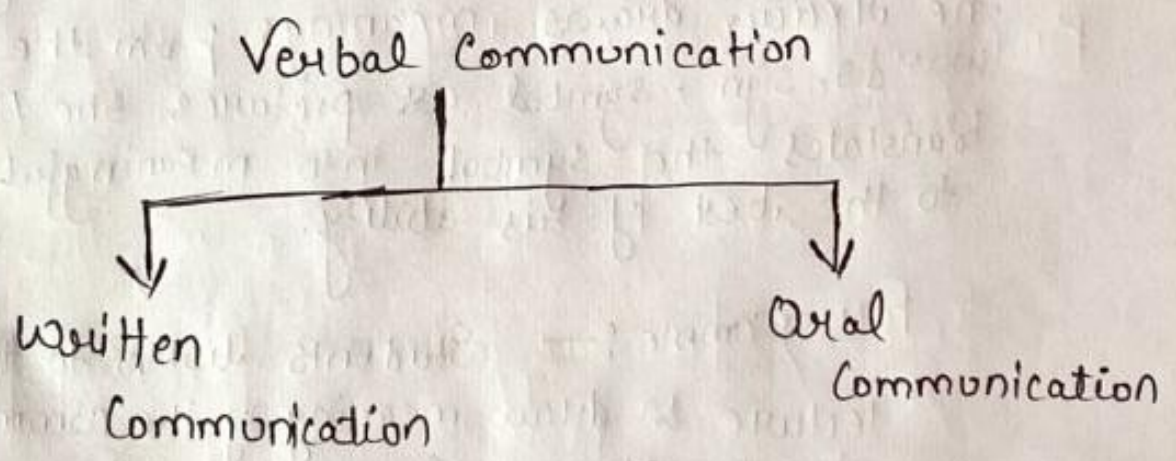 Verbal Communication
Written
Communication
Oral
Communication